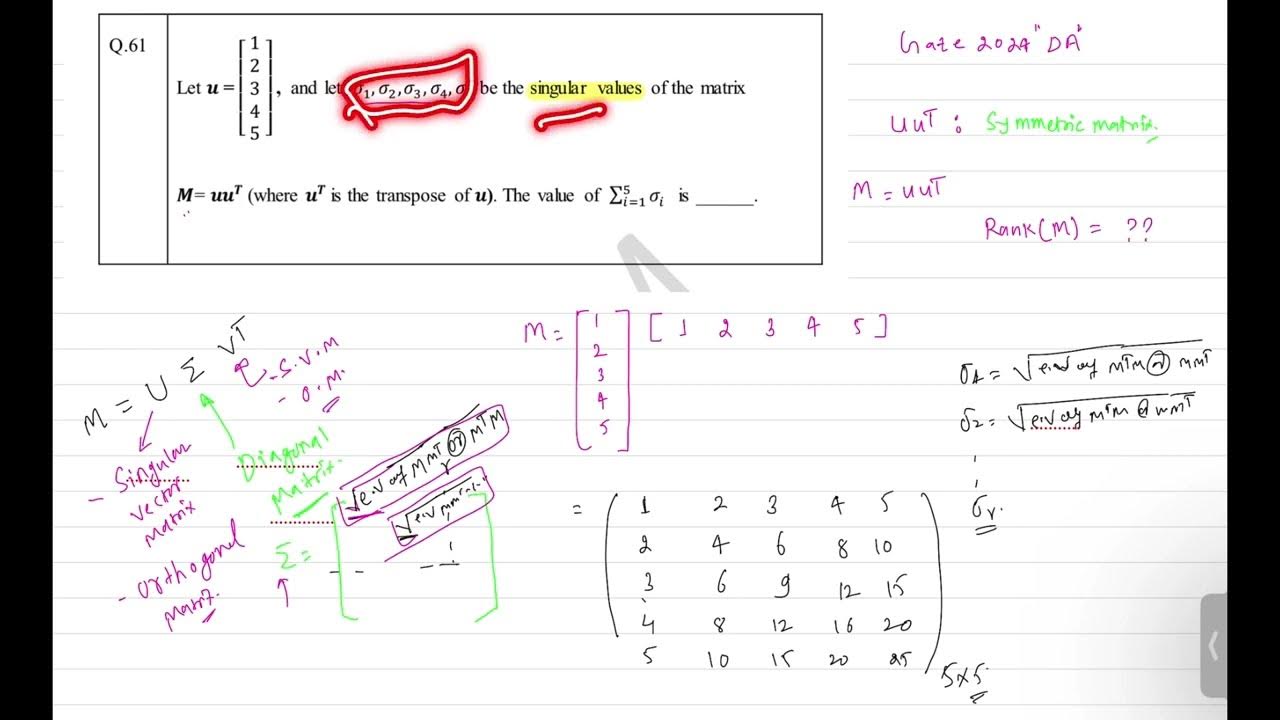 Q.61
Let u = [1 2 3 4 5], and let σ₁, σ₂, σ₃, σ₄, σ be the singular values of the matrix
M = uuᵀ (where uᵀ is the transpose of u). The value of ∑⁵ᵢ₌₁ σᵢ is ______.
Gate 2024 "DA"
uuᵀ : Symmetric matrix.
M = uuᵀ
Rank(M) = ??
M = U Σ Vᵀ
- S.V.M
- O.M.
- Singular
vector
matrix
- Orthogonal
matrix.
Diagonal
Matrix.
Σ =
√e.v of MMᵀ or MᵀM
√e.v MMᵀ
M = [1 2 3 4 5] [1 2 3 4 5]
=
1 2 3 4 5
2 4 6 8 10
3 6 9 12 15
4 8 12 16 20
5 10 15 20 25
5×5
σ₁ = √e.v of MᵀM or MMᵀ
σ₂ = √e.v of MᵀM or MMᵀ
σᵣ.